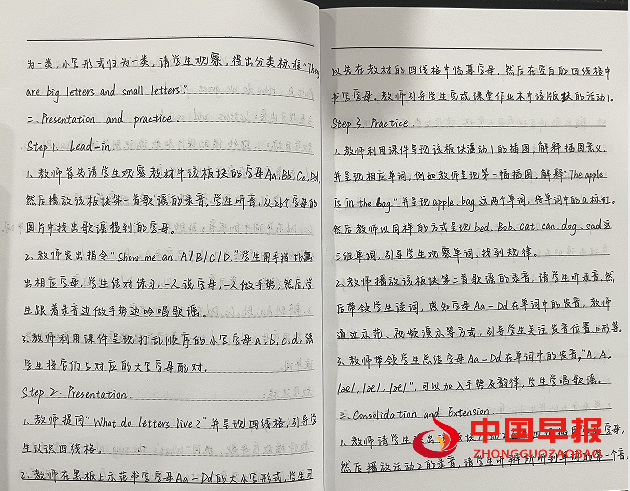 为一类，小写形式归为一类，请学生观察，得出分类标准“They
are big letters and small letters”
二. Presentation and practice.
Step 1. Lead-in
1. 教师首先请学生观察教材中该板块的字母Aa, Bb, Cc, Dd,
然后播放该板块第一首歌谣的录音，学生听音，从26个字母的
图片中找出歌谣提到的字母。
2. 教师发出指令“Show me an A/B/C/D.”学生用手指
出相应字母，学生结对练习，一人说字母，一人做手势，然后学
生跟着录音边做手势边吟唱歌谣。
3. 教师利用课件呈现打乱顺序的小写字母a, b, c, d, 请
学生将它们与对应的大写字母配对。
Step 2. Presentation.
1. 教师提问“What do letters live?”并呈现四线格，引导学
生认识四线格。
2. 教师在黑板上示范书写字母Aa-Dd的大小写形式，学生
在教材的四线格中临摹字母，然后在空白的四线格中
书写字母。教师引导学生完成课堂作业本中该版块的活动1。
Step 3. Practice.
1. 教师利用课件呈现该板块活动1的插图，解释插图意义，
并呈现相应单词，例如教师呈现第一幅插图，解释“The apple
is in the bag.”并呈现apple, bag这两个单词，将单词中的a标红。
然后教师以同样的方式呈现bed, Bob, cat, can, dog, sad这
三组单词，引导学生观察单词，找到规律。
2. 教师播放该板块第二首歌谣的录音，请学生听录音，然
后带领学生读词，感知字母Aa-Dd在单词中的发音，教师
通过示范、视频演示等方式，引导学生关注发音位置
3. 教师带领学生总结字母Aa-Dd在单词中的发音，“A, A,
/æ/, /æ/, /æ/”，可以加入手势及韵律，师生学唱歌谣。
三. Consolidation and Extension.
1. 教师请学生
然后播放活动2的录音，请学生听
中国早报
ZHONGGUOZAOBAO